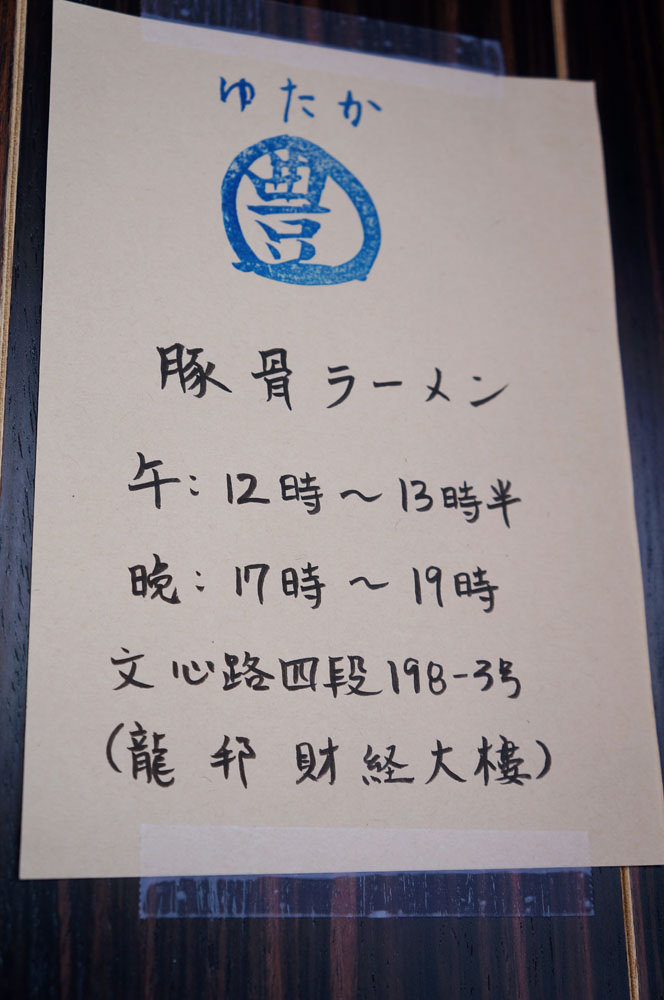 ゆたか
豊
豚骨ラーメン
午：12時〜13時半
晩：17時〜19時
文心路四段198-3号
(龍邦財経大樓)